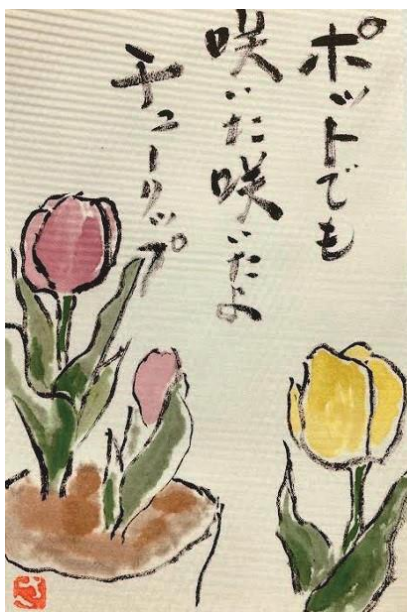 ポットでも
咲いた咲いたよ
チューリップ